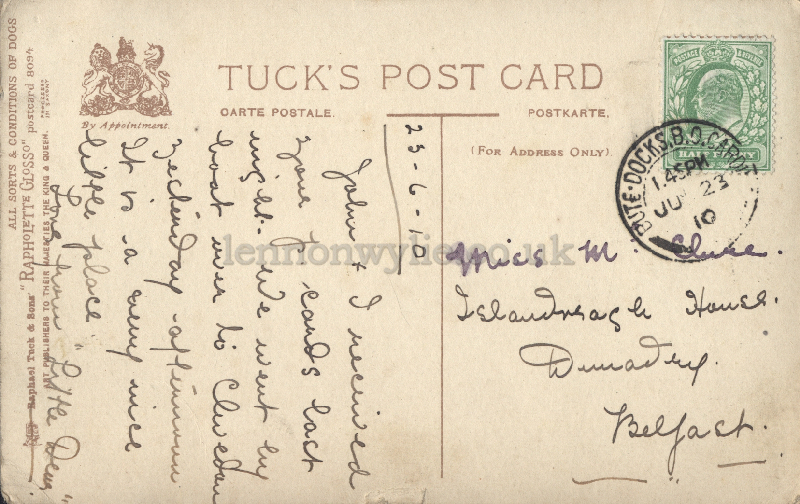 ALL SORTS & CONDITIONS OF DOGS
"RAPHOLETTE GLOSSO" postcard 8094
Raphael Tuck & Sons'
ART PUBLISHERS TO THEIR MAJESTIES THE KING & QUEEN.
PROCESSED IN SAXONY
By Appointment.
TUCK'S POST CARD
CARTE POSTALE.
POSTKARTE.
(FOR ADDRESS ONLY).
POSTAGE REVENUE
HALFPENNY
BUTE-DOCKS.B.O.CARDIFF
1.45PM
JU 23
10
23-6-10
John & I received
your P. cards last
night. We went by
boat over to Clevedon
yesterday afternoon
It is a very nice
little place
Love from "Little Dear"
Miss Mc Clure.
Islandreagh House.
Dunadry.
Belfast.
lennonwylie.co.uk